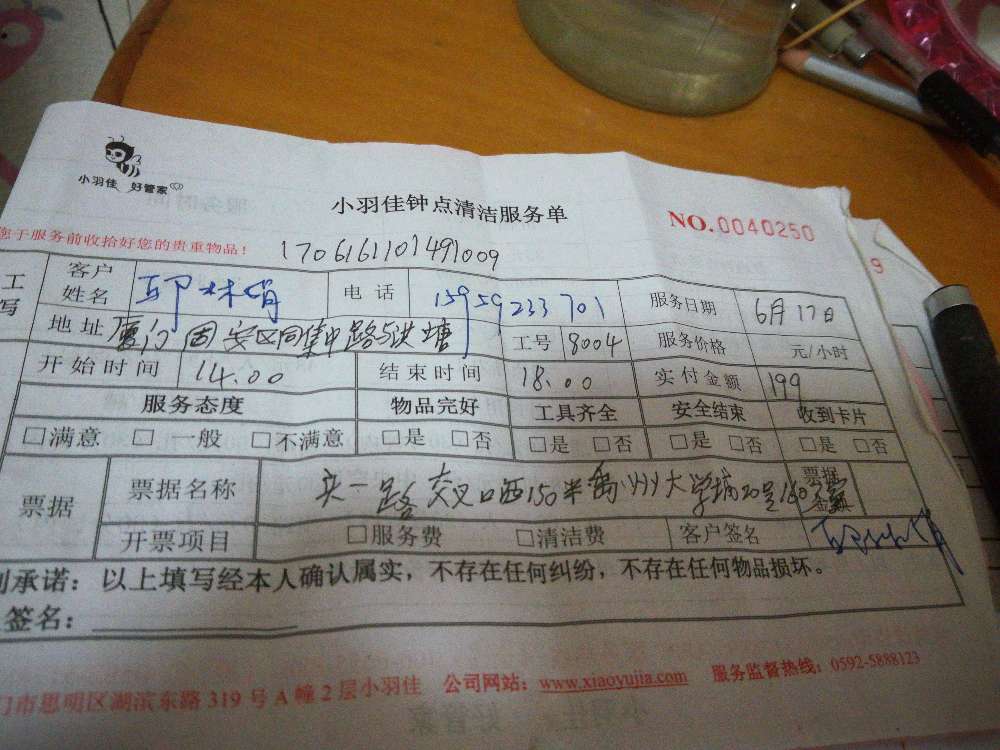 小羽佳 好管家
小羽佳钟点清洁服务单
NO.0040250
您于服务前收拾好您的贵重物品！
170616110749 1009
工 写
客户姓名 邱林娟 电话 15959233701 服务日期 6月17日
地址 厦门 同安区同集中路与洪塘 工号 8004 服务价格 元/小时
开始时间 14.00 结束时间 18.00 实付金额 199
服务态度 物品完好 工具齐全 安全结束 收到卡片
□满意 □一般 □不满意 □是 □否 □是 □否 □是 □否 □是 □否
票据 票据名称 头一路交叉口西150米 大学 票据金额
开票项目 □服务费 □清洁费 客户签名 邱林娟
承诺：以上填写经本人确认属实，不存在任何纠纷，不存在任何物品损坏。
签名：
门市思明区湖滨东路319号A幢2层小羽佳 公司网站：www.xiaoyujia.com 服务监督热线：0592-5888123